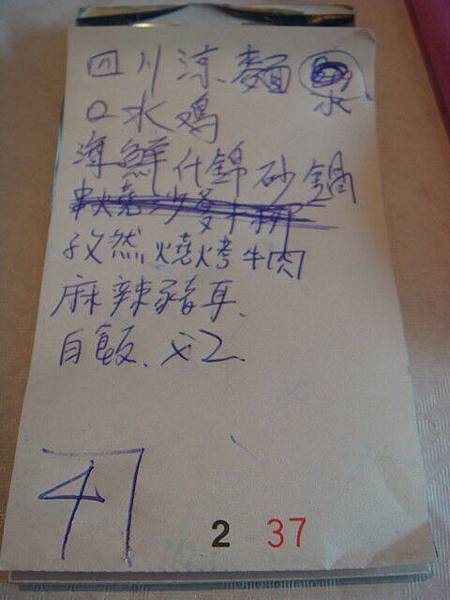 四川涼麵 水
口水鸡
海鮮什錦砂鍋
孜然燒烤牛肉
麻辣豬耳.
白飯. x2.
47
2 37